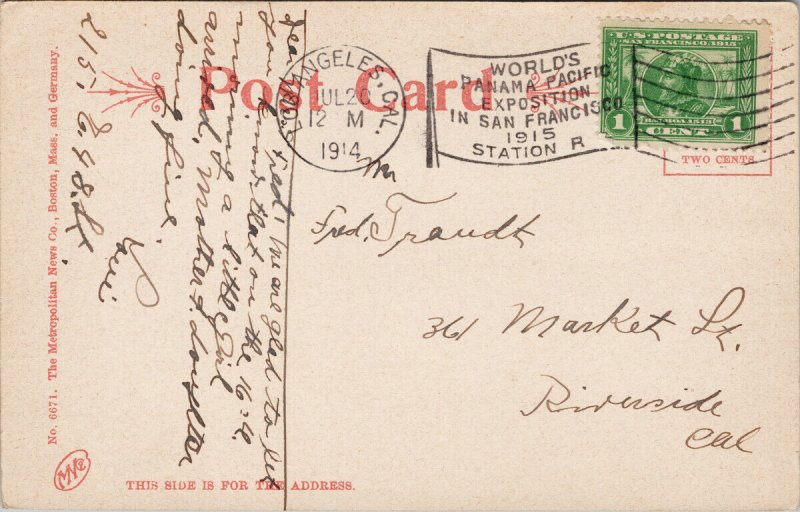 Post Card
LOS ANGELES, CAL.
JUL 20
12 M
1914
WORLD'S
PANAMA PACIFIC
EXPOSITION
IN SAN FRANCISCO
1915
STATION R
U.S. POSTAGE
SAN FRANCISCO 1915
1 CENT 1
TWO CENTS
Mr
Fred. Traudt
361 Market St.
Riverside
Cal
Dear Fred, We are glad to let
you know that on the 16th
morning a little girl
arrived, Mother & doughter
doing fine.
215. E. 48. St
No. 6671. The Metropolitan News Co., Boston, Mass., and Germany.
MNCo
THIS SIDE IS FOR THE ADDRESS.